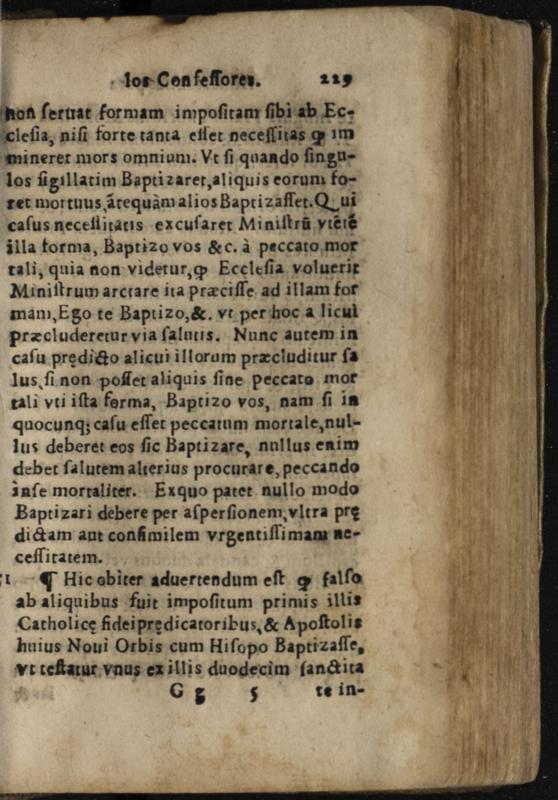 los Confessores. 229
non seruat formam impositam sibi ab Ec-
clesia, nisi forte tanta esset necessitas ꝙ im
mineret mors omnium. Vt si quando singu-
los sigillatim Baptizaret, aliquis eorum fo-
ret mortuus, ātequàm alios Baptizasset. Qui
casus necessitatis excusaret Ministrū vtētē
illa forma, Baptizo vos &c. à peccato mor
tali, quia non videtur, ꝙ Ecclesia voluerit
Ministrum arctare ita præcisse ad illam for
mam, Ego te Baptizo, &. vt per hoc alicui
præcluderetur via salutis. Nunc autem in
casu prędicto alicui illorum præcluditur sa
lus, si non posset aliquis sine peccato mor
tali vti ista forma, Baptizo vos, nam si in
quocunq; casu esset peccatum mortale, nul-
lus deberet eos sic Baptizare, nullus enim
debet salutem alterius procurare, peccando
inse mortaliter. Exquo patet nullo modo
Baptizari debere per aspersionem, vltra prę
dictam aut consimilem vrgentissimam ne-
cessitatem.
¶ Hic obiter aduertendum est ꝙ falso
ab aliquibus fuit impositum primis illis
Catholicę fidei prędicatoribus, & Apostolis
huius Noui Orbis cum Hisopo Baptizasse,
vt testatur vnus ex illis duodecim sanctita
Gg 5 te in-